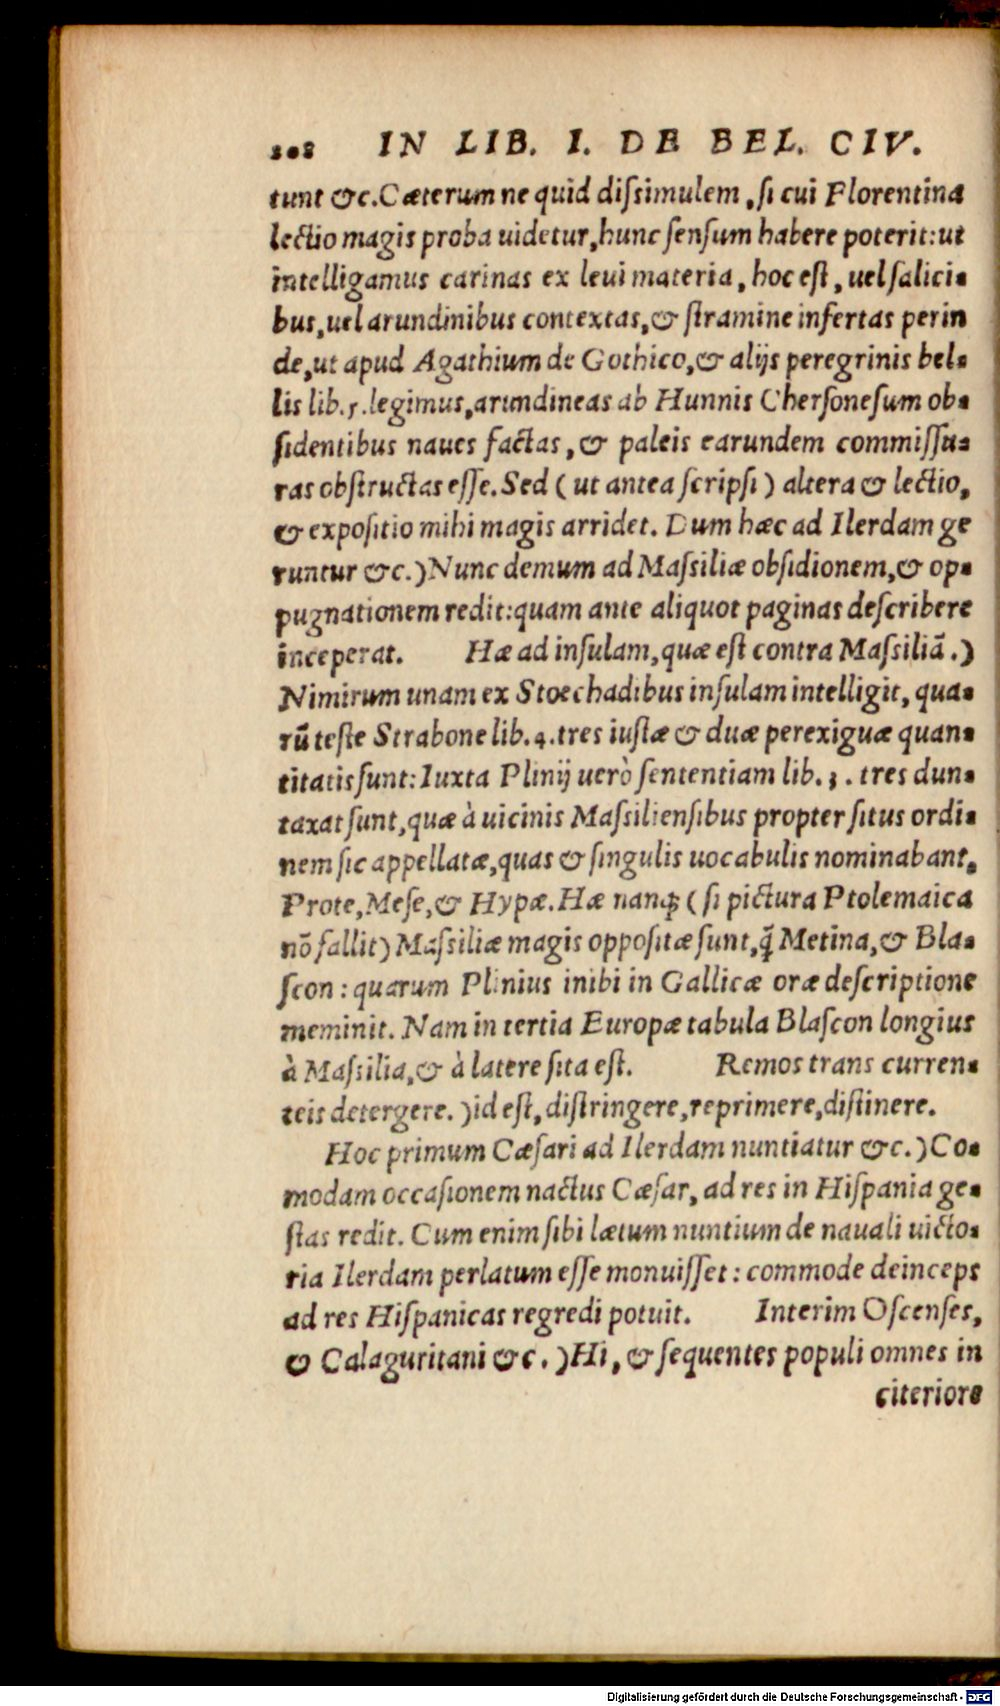 108 IN LIB. I. DE BEL. CIV.
tunt &c. Cæterum ne quid diſsimulem, ſi cui Florentina
lectio magis proba uidetur, hunc ſenſum habere poterit: ut
intelligamus carinas ex leui materia, hoc eſt, uel ſalici-
bus, uel arundinibus contextas, & ſtramine infertas perin
de, ut apud Agathium de Gothico, & alijs peregrinis bel-
lis lib. 5. legimus, arundineas ab Hunnis Cherſoneſum ob-
ſidentibus naues factas, & paleis earundem commiſſu-
ras obſtructas eſſe. Sed ( ut antea ſcripſi ) altera & lectio,
& expoſitio mihi magis arridet. Dum hæc ad Ilerdam ge
runtur &c.) Nunc demum ad Maſsiliæ obſidionem, & op-
pugnationem redit: quam ante aliquot paginas deſcribere
inceperat. Hæ ad inſulam, quæ eſt contra Maſsiliã.)
Nimirum unam ex Stoechadibus inſulam intelligit, qua-
rũ teſte Strabone lib. 4. tres iuſtæ & duæ perexiguæ quan-
titatis ſunt: Iuxta Plinij uerò ſententiam lib. 3. tres dun-
taxat ſunt, quæ à uicinis Maſsilienſibus propter ſitus ordi-
nem ſic appellatæ, quas & ſingulis uocabulis nominabant.
Prote, Meſe, & Hypæ. Hæ nanq; ( ſi pictura Ptolemaica
nõ fallit) Maſsiliæ magis oppoſitæ ſunt, q̃ Metina, & Bla-
ſcon: quarum Plinius inibi in Gallicæ oræ deſcriptione
meminit. Nam in tertia Europæ tabula Blaſcon longius
à Maſsilia, & à latere ſita eſt. Remos trans curren-
teis detergere.) id eſt, diſtringere, reprimere, diſtinere.
Hoc primum Cæſari ad Ilerdam nuntiatur &c.) Co-
modam occaſionem nactus Cæſar, ad res in Hiſpania ge-
ſtas redit. Cum enim ſibi lætum nuntium de nauali uicto-
ria Ilerdam perlatum eſſe monuiſſet: commode deinceps
ad res Hiſpanicas regredi potuit. Interim Oſcenſes,
& Calaguritani &c.) Hi, & ſequentes populi omnes in
citeriore
Digitalisierung gefördert durch die Deutsche Forschungsgemeinschaft - DFG